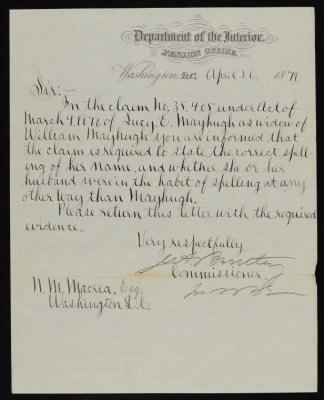 Department of the Interior,
PENSION OFFICE,
Washington, D.C. April 26, 1879
Sir:—
In the claim No. 35,408 under Act of
March 9, 1878 of Lucy C. Mayhugh as widow of
William Mayhugh you are informed that
the claim is required to state the correct spell-
ing of her name, and whether she or her
husband were in the habit of spelling it any
other way than Mayhugh.
Please return this letter with the required
evidence.
Very respectfully
Commissioner
N. M. Macrea, Esq.
Washington D.C.